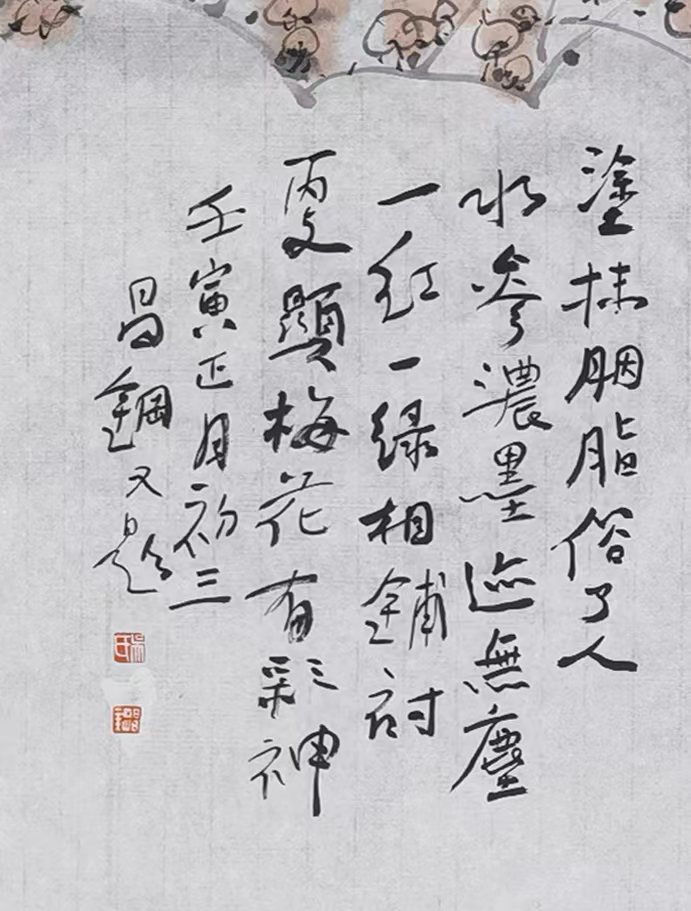 塗抹胭脂俗了人
水參濃墨迹無塵
一紅一緑相鋪衬
更顯梅花有彩神
壬寅正月初三
昌鋼又題